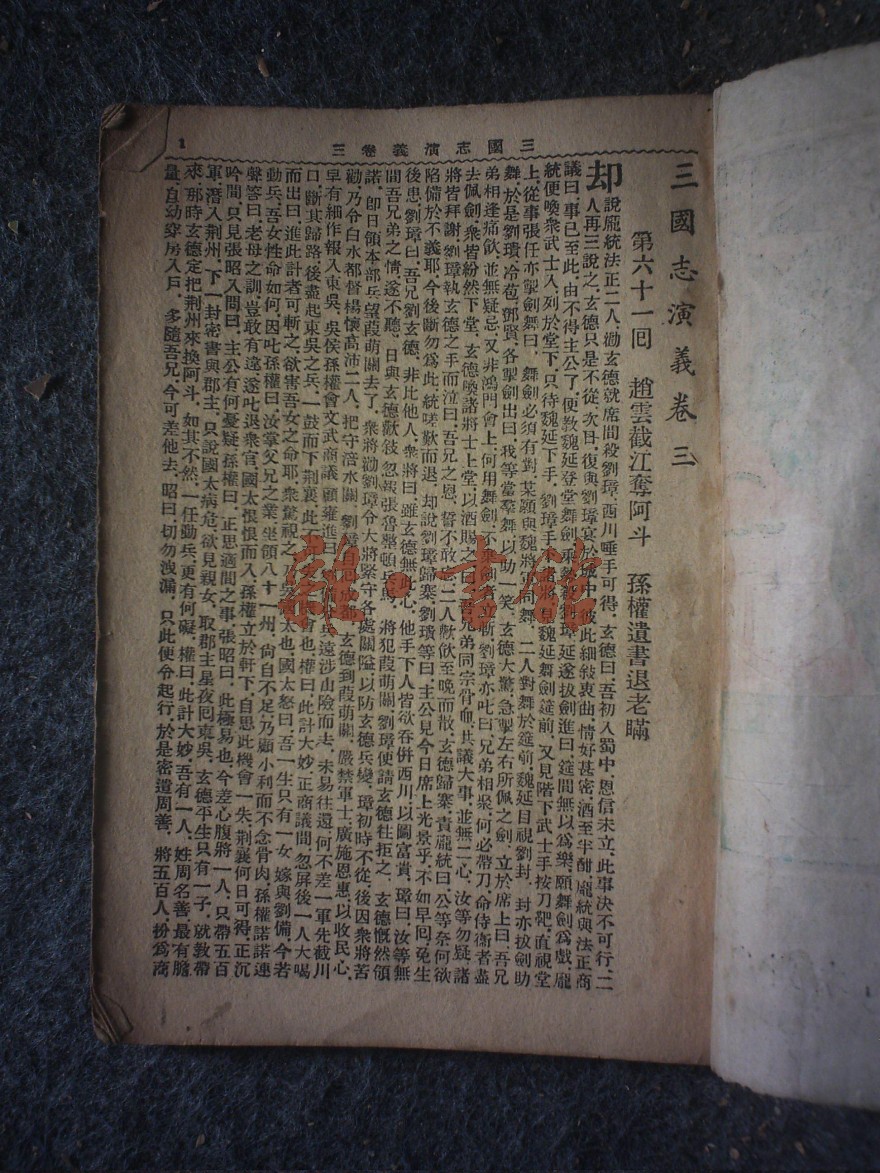 三國志演義卷三
1
三國志演義卷三
第六十一回　趙雲截江奪阿斗　孫權遺書退老瞞
却說龐統法正二人，勸玄德就席間殺劉璋，西川唾手可得，玄德曰，吾初入蜀中，恩信未立，此事決不可行，二
人再三說之，玄德只是不從，次日，復與劉璋宴於城中，彼此細敍衷曲，情好甚密，酒至半酣，龐統與法正商
議曰，事已至此，由不得主公了，便敎魏延登堂舞劍，乘勢殺劉璋，延遂拔劍進曰，筵間無以爲樂，願舞劍爲戲，龐
統便喚衆武士入，列於堂下，只待魏延下手，劉璋手下諸將，見魏延舞劍筵前，又見階下武士手按刀靶，直視堂
上，從事張任亦掣劍舞曰，舞劍必須有對，某願與魏將軍同舞，二人對舞於筵前，魏延目視劉封，封亦拔劍助
舞，於是劉璝，冷苞，鄧賢，各掣劍出曰，我等當羣舞以助一笑，玄德大驚，急掣左右所佩之劍，立於席上曰，吾兄
弟相逢痛飲，並無疑忌，又非鴻門會上，何用舞劍，不棄劍者立斬，劉璋亦叱曰，兄弟相聚，何必帶刀，命侍衛者盡
去佩劍，衆皆紛然下堂，玄德喚諸將士上堂，以酒賜之曰，吾兄弟同宗骨血，共議大事，並無二心，汝等勿疑，諸
將皆拜謝，劉璋執玄德之手而泣曰，吾兄之恩，誓不敢忘，二人歡飲至晚而散，玄德歸寨，責龐統曰，公等奈何欲
陷備於不義耶，今後斷勿爲此，統嗟歎而退，却說劉璋歸寨，劉璝等曰，主公見今日席上光景乎，不如早回，免生
後患，劉璋曰，吾兄劉玄德，非比他人，衆將曰，雖玄德無此心，他手下人皆欲吞併西川，以圖富貴，璋曰，汝等無
間吾兄弟之情，遂不聽，日與玄德歡敍，忽報張魯整頓兵馬，將犯葭萌關，劉璋便請玄德往拒之，玄德慨然領
諾，卽日領本部兵望葭萌關去了，衆將勸劉璋令大將緊守各處關隘，以防玄德兵變，璋初時不從，後因衆將苦
勸，乃令白水都督楊懷高沛二人，把守涪水關，劉璋自回成都，玄德到葭萌關，嚴禁軍士，廣施恩惠，以收民心，
早有細作報入東吳，吳侯孫權會文武商議，顧雍進曰，劉備分兵遠涉山險而去，未易往還，何不差一軍先截川
口，斷其歸路，後盡起東吳之兵，一鼓而下荆襄，此不可失之機會也，權曰，此計大妙，正商議間，忽屏後一人大喝
而出曰，進此計者可斬之，欲害吾女之命耶，衆驚視之，乃吳國太也，國太怒曰，吾一生只有一女，嫁與劉備，今若
動兵，吾女性命如何，因叱孫權曰，汝掌父兄之業，坐領八十一州，尙自不足，乃顧小利而不念骨肉，孫權諾諾連
聲，答曰，老母之訓，豈敢有違，遂叱退衆官，國太恨恨而入，孫權立於軒下，自思此機會一失，荆襄何日可得，正沉
吟間，只見張昭入問曰，主公有何憂疑，孫權曰，正思適間之事，張昭曰，此極易也，今差心腹將一人，只帶五百
軍，潛入荆州，下一封密書與郡主，只說國太病危，欲見親女，取郡主星夜回東吳，玄德平生只有一子，就敎帶
來，那時玄德定把荆州來換阿斗，如其不然，一任動兵，更有何礙，權曰，此計大妙，吾有一人，姓周名善，最有膽
量，自幼穿房入戶，多隨吾兄，今可差他去，昭曰，切勿洩漏，只此便令起行，於是密遣周善，將五百人，扮爲商